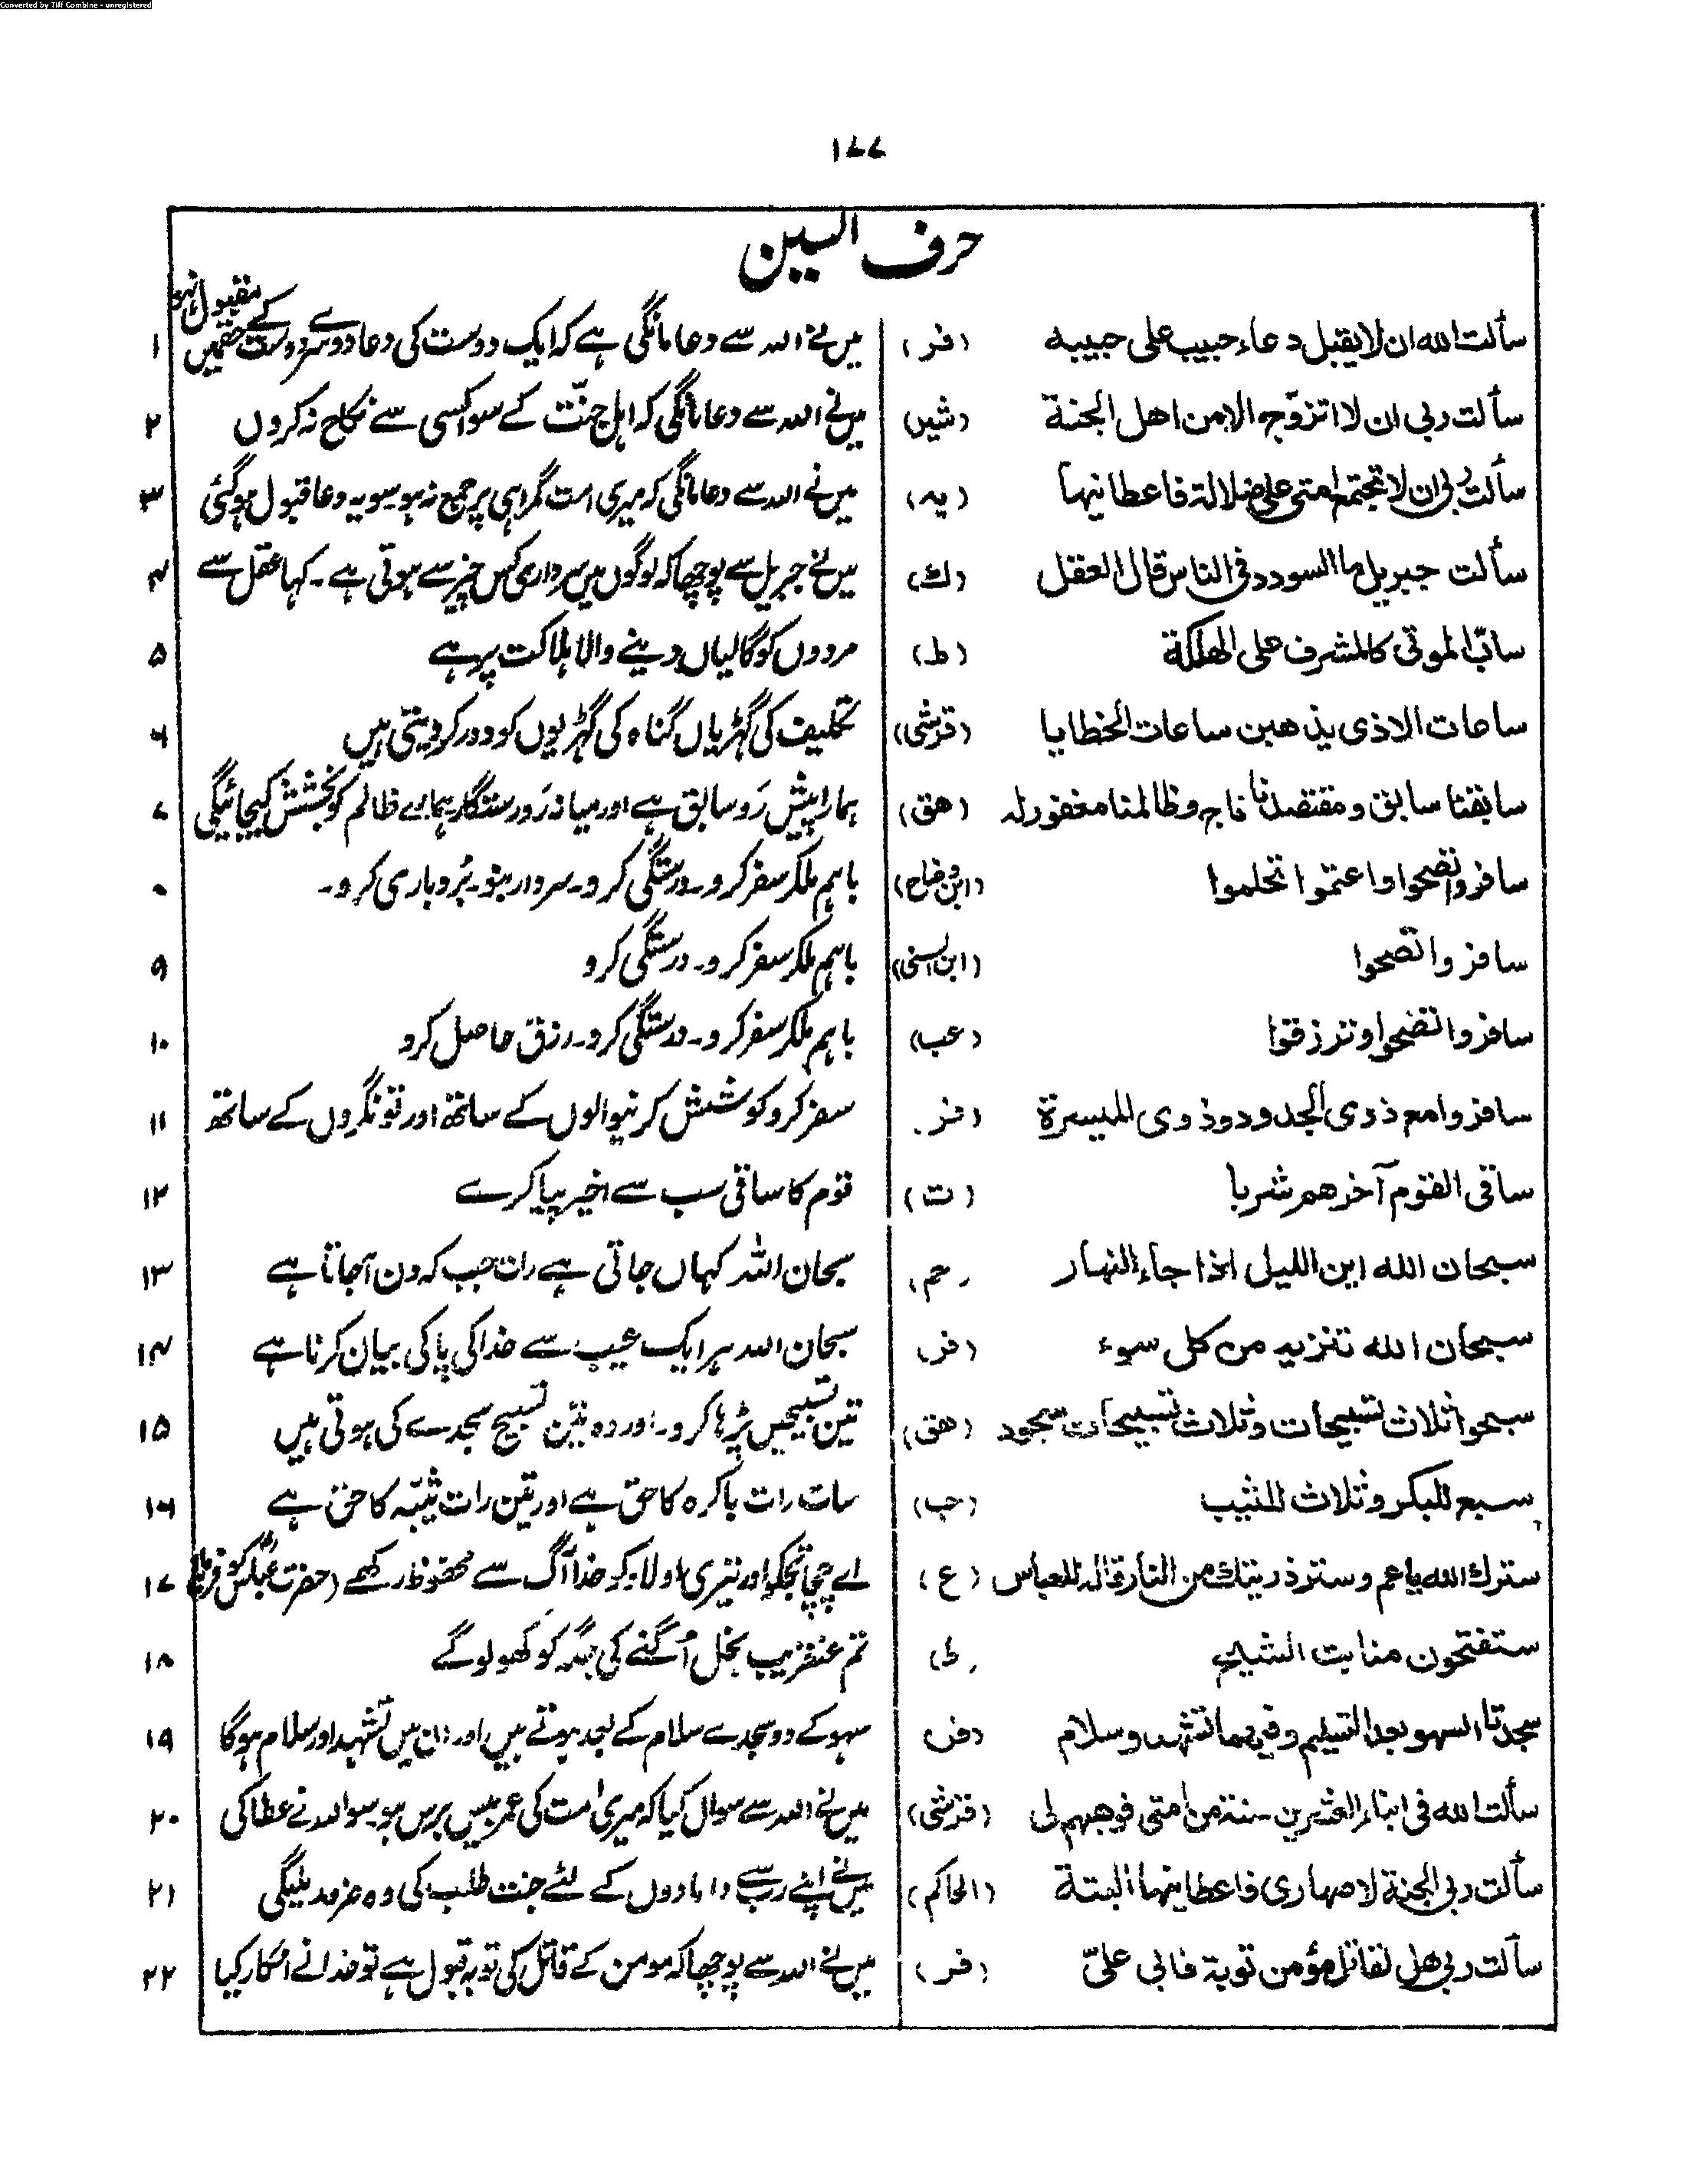 Converted by Tiff Combine - unregistered
۱۷۷
حرف السین
سألت الله ان لا یقبل دعاء حبیب علی حبیبه (فر) میں نے اللہ سے دعا مانگی ہے کہ ایک دوست کی دعا دوسرے دوست کے حقمیں مقبول نہو ۱
سألت ربی ان لا اتزوّج الا من اهل الجنة (شیر) میں نے اللہ سے دعا مانگی کہ اہل جنّت کے سوا کسی سے نکاح نہ کروں ۲
سألت ربی ان لا تجتمع امتی علی ضلالة فاعطانیها (یه) میں نے اللہ سے دعا مانگی کہ میری امت گمراہی پر جمع نہ ہو سو یہ دعا قبول ہوگئی ۳
سألت جبریل ما السودد فی الناس قال العقل (ك) میں نے جبریل سے پوچھا کہ لوگوں میں سرداری کس چیز سے ہوتی ہے ۔ کہا عقل سے ۴
سابّ الموتی کالمشرف علی الهلکة (ط) مردوں کو گالیاں دینے والا ہلاکت پر ہے ۵
ساعات الاذی یذهبن ساعات الخطایا (قرشی) تکلیف کی گہڑیاں گناہ کی گہڑیوں کو دور کر دیتی ہیں ۶
سابقنا سابق و مقتصدنا ناج وظالمنا مغفور له (هق) ہمارا پیش رَو سابق ہے اور میانہ رَو رستگار ہمارے ظالم کو بخشش کیجائیگی ۷
سافروا تصحوا واعتموا تحلموا (ابن وضاح) باہم ملکر سفر کرو ۔ درستگی کرو ۔ سردار بنو ۔ بُردباری کرو ۔ ۸
سافروا تصحوا (ابن السنی) باہم ملکر سفر کرو ۔ درستگی کرو ۹
سافروا تصحوا و ترزقوا (عب) باہم ملکر سفر کرو ۔ درستگی کرو ۔ رزق حاصل کرو ۱۰
سافروا مع ذوی الجدود وذوی المیسرة (فر) سفر کرو کوشش کرنیوالوں کے ساتھ اور تونگروں کے ساتھ ۱۱
ساقی القوم آخرهم شربا (ت) قوم کا ساقی سب سے اخیر پیا کرے ۱۲
سبحان الله این اللیل اذا جاء النهار (حم) سبحان اللہ کہاں جاتی ہے رات جب کہ دن آجاتا ہے ۱۳
سبحان الله تنزیه من کل سوء (فر) سبحان اللہ ہر ایک عیب سے خدا کی پاکی بیان کرنا ہے ۱۴
سبحوا ثلاث تسبیحات وثلاث تسبیحات سجود (هق) تین تسبیحیں پڑہا کرو ۔ اور وہ تین تسبیح سجدے کی ہوتی ہیں ۱۵
سبع للبکر وثلاث للثیب (حب) سات رات باکرہ کا حق ہے اور تین رات ثیّبہ کا حق ہے ۱۶
سترك الله یا عم وستر ذریتك من النار قاله للعباس (ع) اے چچا تجکو اور تیری اولاد کو خدا آگ سے محفوظ رکھے (حضرت عباس کو فرمایا) ۱۷
ستفتحون منابت الشیح (لی) تم عنقریب بخل اُگنے کی جگہ کو کھولو گے ۱۸
سجدتا السهو بعد التسلیم وفیهما تشهد وسلام (فر) سہو کے دو سجدے سلام کے بعد ہوتے ہیں اور ان میں تشہد اور سلام ہوگا ۱۹
سألت الله فی ابناء العشرین سنة من امتی فوهبهم لی (قرشی) میں نے اللہ سے سوال کیا کہ میری امت کی عمر بیس برس ہو سو اللہ نے عطا کی ۲۰
سألت ربی الجنة لاصهاری فاعطانیها البتة (الحاکم) میں نے اپنے رب سے دامادوں کے لئے جنت طلب کی وہ ضرور ملیگی ۲۱
سألت ربی هل لقاتل مؤمن توبة فابی علیّ (فر) میں نے اللہ سے پوچھا کہ مومن کے قاتل کی توبہ قبول ہے تو خدا نے انکار کیا ۲۲